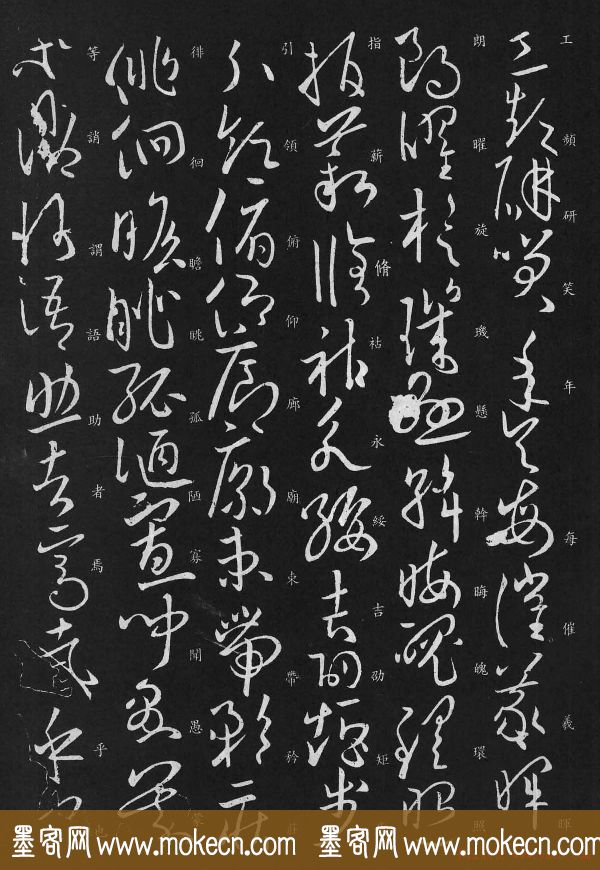 工頻研笑年矢每催羲暉
朗曜旋璣懸斡晦魄環照
指薪脩祜永綏吉劭矩步
引領俯仰廊廟束帶矜莊
徘徊瞻眺孤陋寡聞愚蒙
等誚謂語助者焉哉乎也
墨客网 www.mokecn.com 墨客网 www.mokecn.com